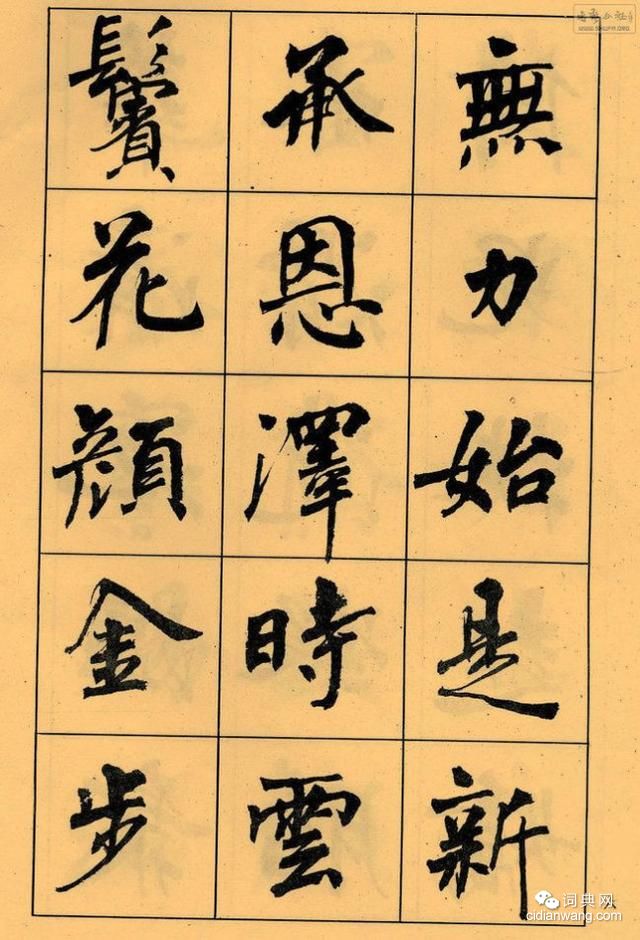 無力始是新
承恩澤時雲
鬢花顔金步
www.shufa.org
词典网
cidianwang.com